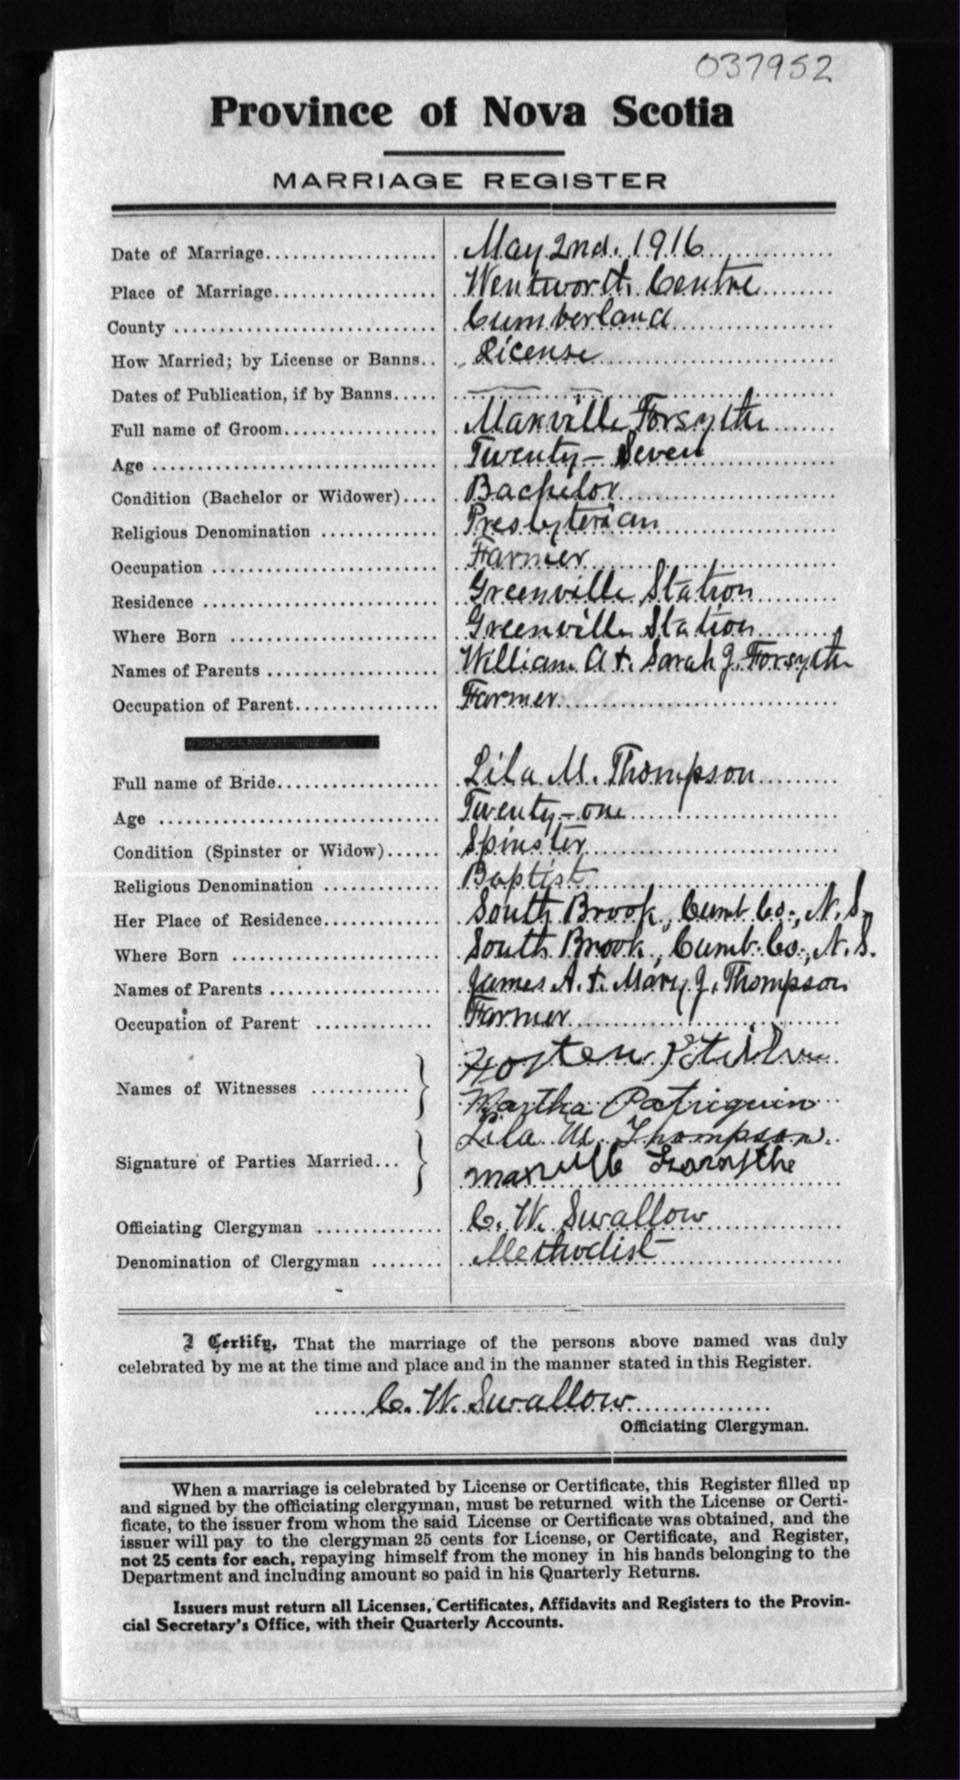 037952
Province of Nova Scotia
MARRIAGE REGISTER
Date of Marriage................... May 2nd. 1916
Place of Marriage.................. Wentworth Centre
County .............................. Cumberland
How Married; by License or Banns.. License
Dates of Publication, if by Banns..... —
Full name of Groom................. Maxville Forsythe
Age ................................ Twenty-Seven
Condition (Bachelor or Widower).... Bachelor
Religious Denomination ............. Presbyterian
Occupation ......................... Farmer
Residence .......................... Greenville Station
Where Born ......................... Greenville Station
Names of Parents ................... William A + Sarah J. Forsyth
Occupation of Parent................ Farmer
Full name of Bride.................. Lila M. Thompson
Age ................................ Twenty-one
Condition (Spinster or Widow)...... Spinster
Religious Denomination ............. Baptist
Her Place of Residence............. South Brook, Cumb. Co., N.S.
Where Born ......................... South Brook, Cumb. Co., N.S.
Names of Parents ................... James A. + Mary J. Thompson
Occupation of Parent ............... Farmer
Names of Witnesses ............
Martha Patriquin
Lila M. Thompson.
Signature of Parties Married... Maxville Forsythe
Officiating Clergyman .............. C. W. Swallow
Denomination of Clergyman ........ Methodist
I Certify, That the marriage of the persons above named was duly
celebrated by me at the time and place and in the manner stated in this Register.
C. W. Swallow
Officiating Clergyman.
When a marriage is celebrated by License or Certificate, this Register filled up
and signed by the officiating clergyman, must be returned with the License or Certi-
ficate, to the issuer from whom the said License or Certificate was obtained, and the
issuer will pay to the clergyman 25 cents for License, or Certificate, and Register,
not 25 cents for each, repaying himself from the money in his hands belonging to the
Department and including amount so paid in his Quarterly Returns.
Issuers must return all Licenses, Certificates, Affidavits and Registers to the Provin-
cial Secretary's Office, with their Quarterly Accounts.